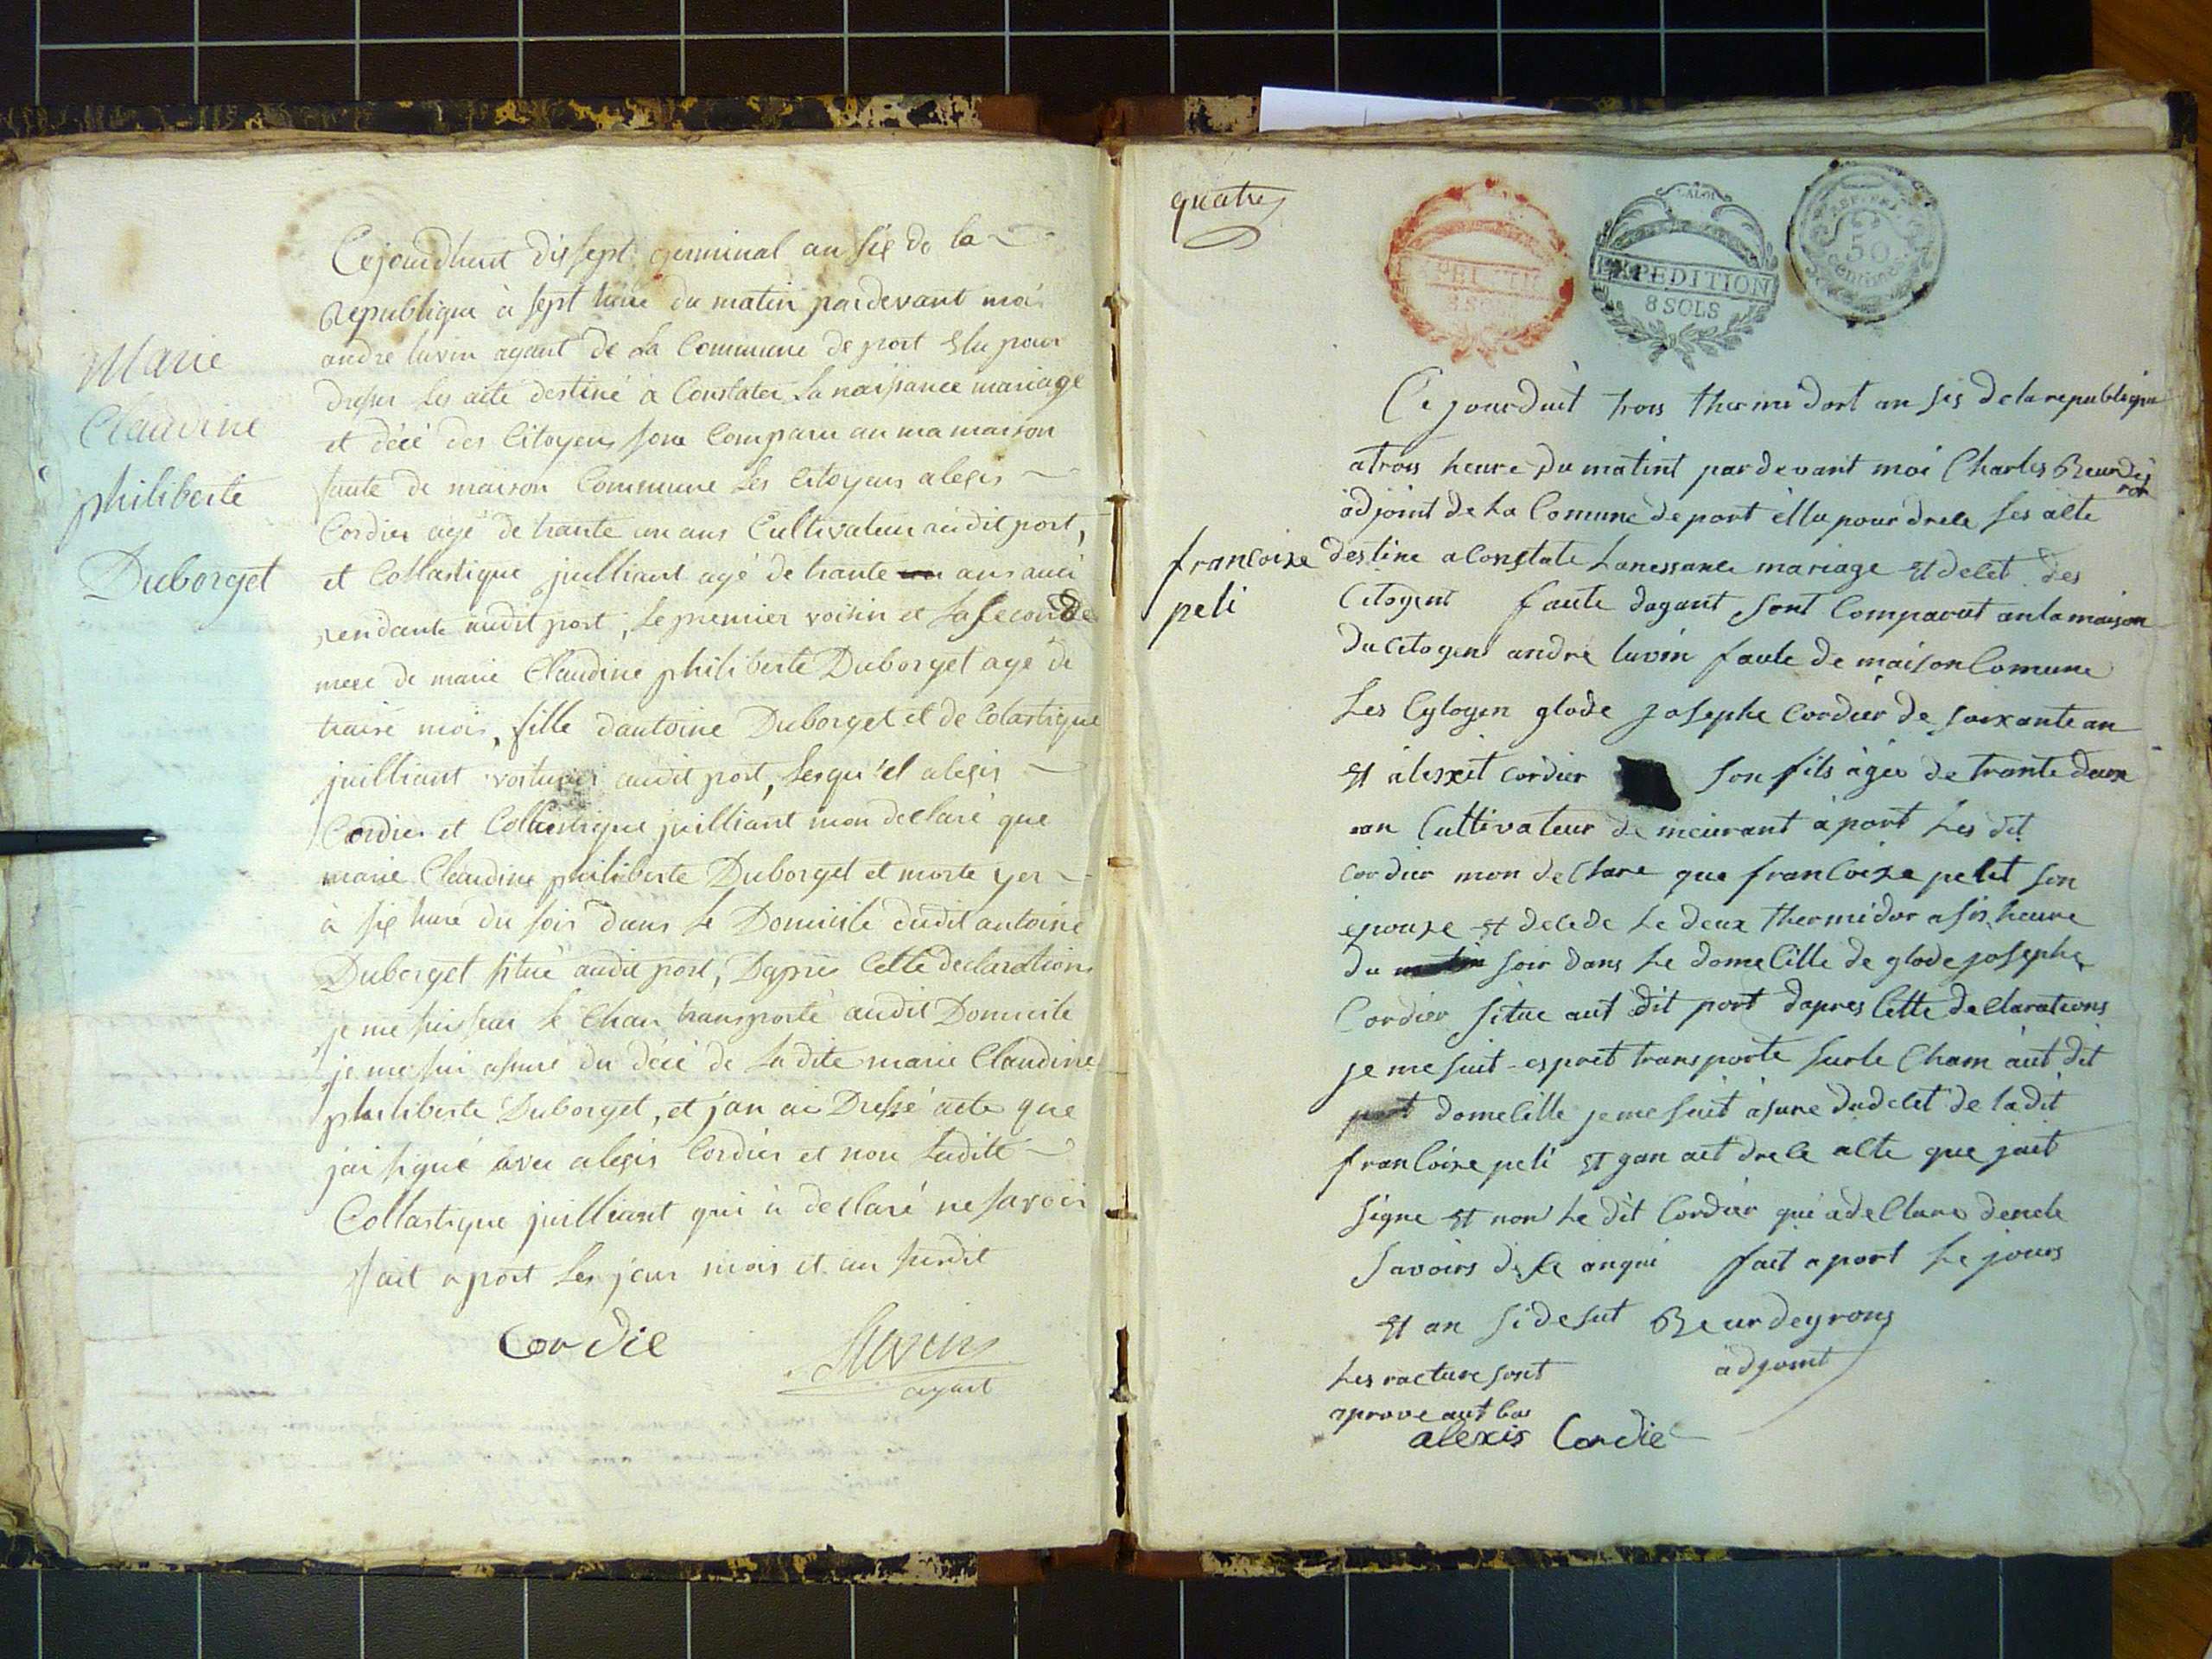 Marie
Claudine
philiberte
Duborget
Cejourdhuit dis sept germinal an six de la
Republique à sept heure du matin pardevant moi
andre luvin agant de La Commune de port Elu pour
dresser Les acte destiné a Constater La naissance mariage
et décé des Citoyens sont Comparu an ma maison
faute de maison Commune Les Citoyens alexis
Cordier agé de trante un ans Cultivateur audit port,
et Collastique juilliant agé de trante un ans auci
rendante audit port, Le premier voisin et La seconde
mere de marie Claudine philiberte Duborget age de
traise mois, fille dantoine Duborget et de Colastique
juilliant voiturier audit port, Lesqu'el alexis
Cordier et Collastique juilliant mon declaré que
marie Claudine philiberte Duborget et morte yer
à six hure du soir dans Le Domicile dudit antoine
Duborget situé audit port, Dapres Cette declaration
je me suis sur Le Chan transporté audit Domicile
je me sui assuré du décé de La dite marie Claudine
philiberte Duborget, et jan ai Dressé acte que
jai signé avec alexis Cordier et non Ladite
Collastique juilliant qui à declaré ne savoir
fait a port Les jour mois et an surdit
Cordie
Luvin
agant
quatre
EXPEDITION
8 SOLS
EXPEDITION
8 SOLS
50
centimes
francoise
peli
Ce jourduit trois thermidort an sis de la republique
a trois heure du matint par devant moi Charles Beurdey
ron
adjoint de La Comune de port éllu pour drece ses alte
destine a Constate Lanessance mariage et decet des
Citogent faute dagant sont Comparut anla maison
du Citogent andré luvin faute de maison Comune
Les Cytogen glode josephe Cordier de soixante an
et alexxit cordier son fils àgée de trante deux
an Cultivateur demeurant à port Les dit
Cordier mon declare que francoise petit son
épouse et decede Le deux thermidor a sis heure
du matin soir dans Le domecille de glode josephe
Cordier situe aut dit port dapres Cette declarations
je me suit espret transporte surle Cham aut dit
port domecille je me suit àsure dudecet de ladit
francoise peli et gan ait drece alte que jait
signe et non Le dit Cordier qui a declare dene
savoirs de ce anqui fait a port Le jours
et an sidesut Beurdeyrons
adgoint
Les racture sont
aprove aut bas
alexis Cordie